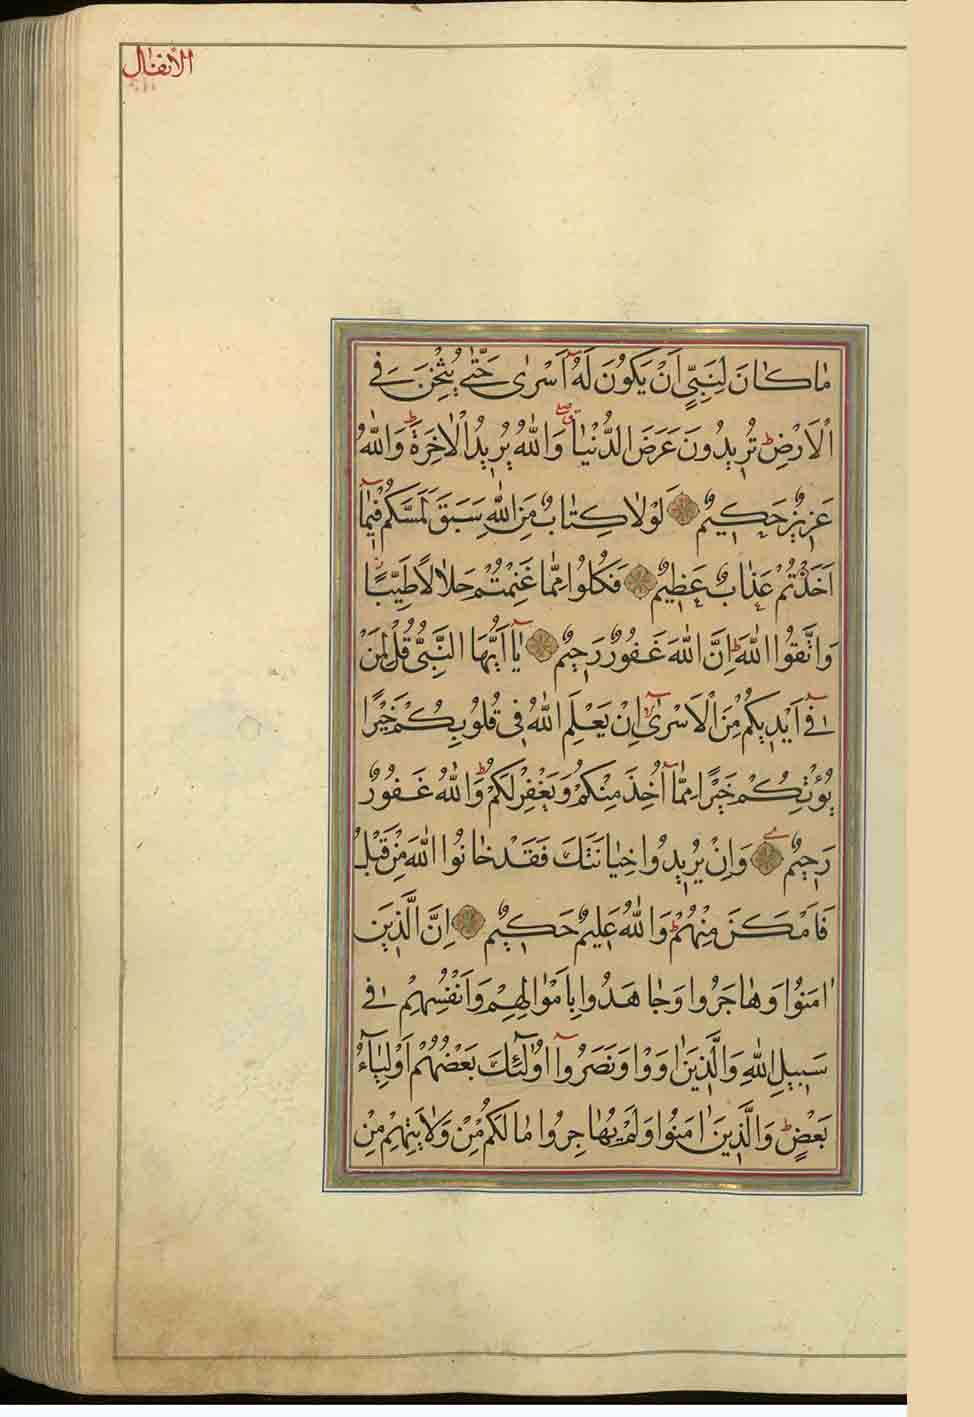 الأنفال
مَا كَانَ لِنَبِيٍّ اَنْ يَكُونَ لَهُٓ اَسْرٰى حَتّٰى يُثْخِنَ فِي
الْاَرْضِ ط تُرِيدُونَ عَرَضَ الدُّنْيَا صلى ق وَاللّٰهُ يُرِيدُ الْاٰخِرَةَ ط وَاللّٰهُ
عَزِيزٌ حَكِيمٌ لَوْلَا كِتَابٌ مِنَ اللّٰهِ سَبَقَ لَمَسَّكُمْ فِيمَٓا
اَخَذْتُمْ عَذَابٌ عَظِيمٌ فَكُلُوا مِمَّا غَنِمْتُمْ حَلَالًا طَيِّبًا ز
وَاتَّقُوا اللّٰهَ ط اِنَّ اللّٰهَ غَفُورٌ رَحِيمٌ يَٓا اَيُّهَا النَّبِيُّ قُلْ لِمَنْ
فِٓي اَيْدِيكُمْ مِنَ الْاَسْرٰىٓ اِنْ يَعْلَمِ اللّٰهُ فِي قُلُوبِكُمْ خَيْرًا
يُؤْتِكُمْ خَيْرًا مِمَّٓا اُخِذَ مِنْكُمْ وَيَغْفِرْ لَكُمْ ط وَاللّٰهُ غَفُورٌ
رَحِيمٌ وَاِنْ يُرِيدُوا خِيَانَتَكَ فَقَدْ خَانُوا اللّٰهَ مِنْ قَبْلُ
فَاَمْكَنَ مِنْهُمْ ط وَاللّٰهُ عَلِيمٌ حَكِيمٌ اِنَّ الَّذِينَ
اٰمَنُوا وَهَاجَرُوا وَجَاهَدُوا بِاَمْوَالِهِمْ وَاَنْفُسِهِمْ فِي
سَبِيلِ اللّٰهِ وَالَّذِينَ اٰوَوْا وَنَصَرُوٓا اُولٰٓئِكَ بَعْضُهُمْ اَوْلِيَٓاءُ
بَعْضٍ ط وَالَّذِينَ اٰمَنُوا وَلَمْ يُهَاجِرُوا مَا لَكُمْ مِنْ وَلَايَتِهِمْ مِنْ